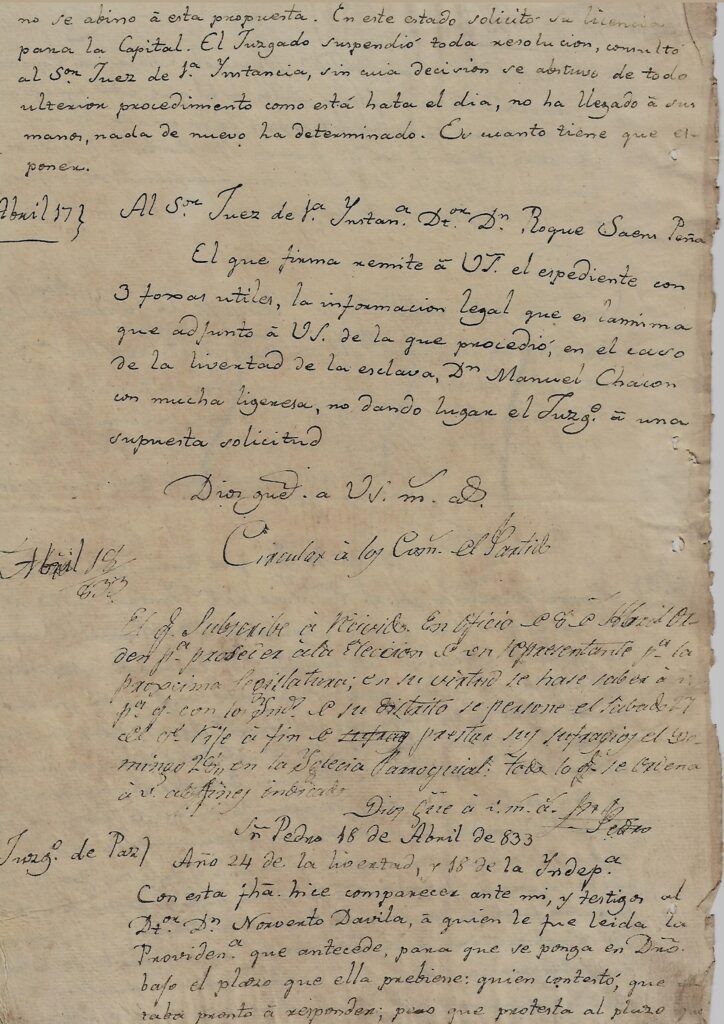 no se abino â esta propuesta. En este estado solicitó su licencia
para la Capital. El Juzgado suspendió toda resolucion, consultó
al Sor. Juez de 1.a Instancia, sin cuia decision se abstuvo de todo
ulterior procedimiento como está hata el dia, no ha llegado â sus
manos, nada de nuevo ha determinado. Es cuanto tiene que es-
poner.
Abril 17}
Al Sor. Juez de 1.a Instan.a Dtor. Dn. Roque Saens Peña
El que firma remite â US. el espediente con
3 foxas utiles, la informacion legal que es la misma
que adjunto â US. de la que procedió, en el caso
de la livertad de la esclava, Dn Manuel Chacon
con mucha ligeresa, no dando lugar el Juzg.o â una
supuesta solicitud
Dios gue. a Us. m. as.
Abril 18
833
Circular â los Com. el Partido
El q. Subscribe â Recivido. En oficio de Abril Or
den pa. proseer âla Eleccion de un representante pa. la
procsima legislatura; en su virtud se hase saber â
pa. q. con los de su distrito se persone el Sabado 27
del â fin de sufrag prestar sus sufragios el Do
mingo 28 en la Yglecia Parroquial: todo lo q. se ordena
â v. a los fines indicados
Dios gue â v. m. a. Sn Pedro
Juzg.o de Paz}
Sn Pedro 18 de Abril de 833
Año 24 de la livertad, y 18 de la Indep.a
Con esta fha. hice comparecer ante mi, y testigos al
Dtor. Dn Norverto Davila, â quien le fue leida la
Providen.a que antecede, para que se ponga en Dro.
bajo el plazo que ella prebiene: quien contestó, que
taba pronto â responder; pero que protesta al plazo que